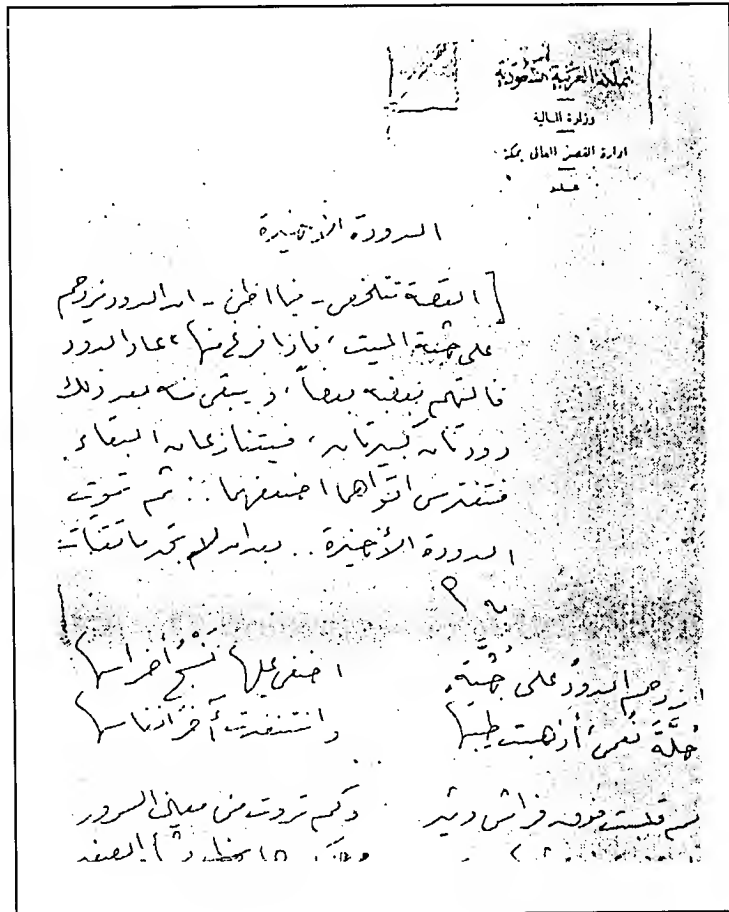 المملكة العربية السعودية
وزارة المالية
ادارة القصر العالى بمكة
عدد
الدودة الأخيرة
[ القصة تتلخص - فيما اظن - ان الدود يزدحم
على جثة الميت، فاذا فرغ منها، عاد الدود
فالتهم بعضه بعضاً، ويبقى منه بعد ذلك
دودتان كبيرتان، فيتنازعان البقاء
فتفترس اقواهما اضعفهما .. ثم تموت
الدودة الأخيرة .. بعد ان لم تجد ما تقتات
به ؟
ازدحم الدودُ على جُثَّةٍ اضفى عليها نَسْجُ أضراسها
حُلَّةَ نُعمى أذهبت طيبها واستنفدت أخز
كم قلبت فوق فراش وثير وكم تروت من معاني السرور